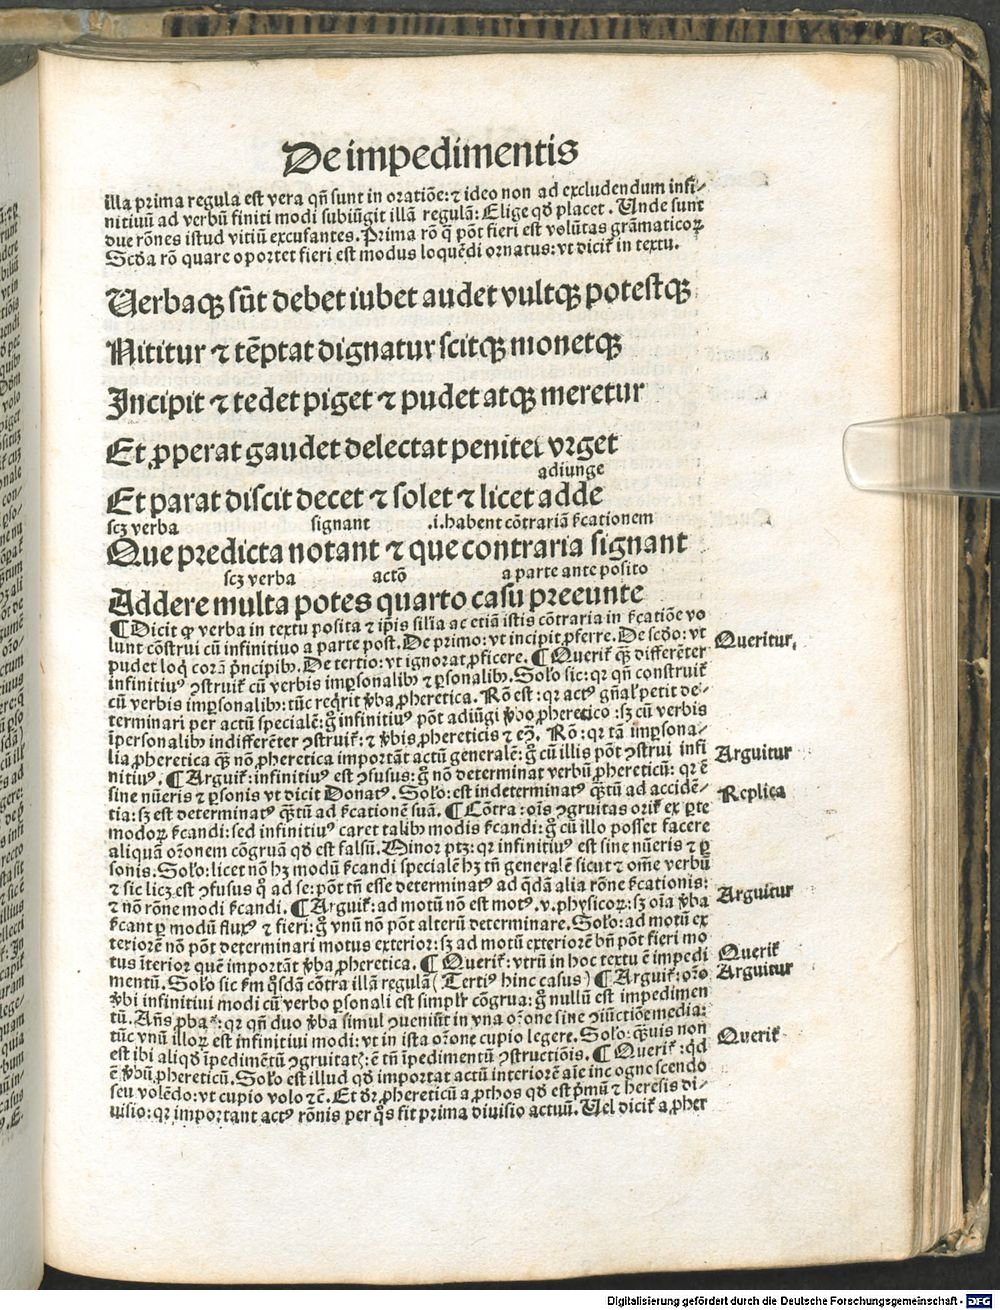 De impedimentis
illa prima regula est vera qñ sunt in oratiõe: ⁊ ideo non ad excludendum infi⸗
nitiuũ ad verbũ finiti modi subiũgit illã regulã: Elige qđ placet. Unde sunt
due rõnes istud vitiũ excusantes. Prima rõ q̃ põt fieri est volũtas grãmaticoꝝ
Scđa rõ quare oportet fieri est modus loquẽdi ornatus: vt diciꝉ in textu.
Verbaqꝫ sũt debet iubet audet vultqꝫ potestqꝫ
Nititur ⁊ tẽptat dignatur scitqꝫ monetqꝫ
Incipit ⁊ tedet piget ⁊ pudet atqꝫ meretur
Et ꝓperat gaudet delectat penitet vrget
adiunge
Et parat discit decet ⁊ solet ⁊ licet adde
scꝫ verba signant .i. habent cõtrariã ẜcationem
Que predicta notant ⁊ que contraria signant
scꝫ verba actõ a parte ante posito
Addere multa potes quarto casu preeunte
¶ Dicit ꝙ verba in textu posita ⁊ ip̃is sil̃ia ac etiã istis cõtraria in ẜcatiõe vo
lunt cõstrui cũ infinitiuo a parte post. De primo: vt incipit ꝓferre. De scđo: vt
pudet loqͥ corã pͥncipibꝰ. De tertio: vt ignorat ꝓficere. ¶ Queriꝉ qͣ̃ differẽter
Queritur.
infinitiuꝰ ꝯstruiꝉ cũ verbis imꝑsonalibꝰ ⁊ ꝑsonalibꝰ. Solꝰo sic: qꝛ qñ construiꝉ
cũ verbis imꝑsonalibꝰ: tũc reqͥrit ṽba ꝓheretica. Rõ est: qꝛ actꝰ gñalꝰ petit de⸗
terminari per actũ specialẽ: gͦ infinitiuꝰ põt adiũgi ṽbo ꝓheretico: sꝫ cũ verbis
ĩpersonalibꝰ indifferẽter ꝯstruiꝉ: ⁊ ṽbis ꝓhereticis ⁊ eꝫ̃. Rõ: qꝛ tã imꝑsona⸗
lia ꝓheretica qͣ̃ nõ ꝓheretica importãt actũ generalẽ: gͦ cũ illis põt ꝯstrui infi
nitiuꝰ. ¶ Arguiꝉ: infinitiuꝰ est ꝯfusus: gͦ nõ determinat verbũ ꝓhereticũ: qꝛ ẽ
Arguitur
sine nũeris ⁊ ꝑsonis vt dicit Donatꝰ. Solꝰo: est indeterminatꝰ qͣ̃tũ ad accidẽ⸗
tia: sꝫ est determinatꝰ qͣ̃tũ ad ẜcationẽ suã. ¶ Cõtra: oĩs ꝯgruitas oriꝉ ex ꝑte
Replica
modoꝝ ẜcandi: sed infinitiuꝰ caret talibꝰ modis ẜcandi: gͦ cũ illo posset facere
aliquã oꝛonem cõgruã qđ est falsũ. Minor ptꝫ: qꝛ infinitiuꝰ est sine nũeris ⁊ ꝑ
sonis. Solꝰo: licet nõ hꝫ modũ ẜcandi specialẽ hꝫ tñ generalẽ sicut ⁊ om̃e verbũ
⁊ sic licꝫ est ꝯfusus qͦ ad se: põt tñ esse determinatꝰ ad qͥdã alia rõne ẜcationis:
⁊ nõ rõne modi ẜcandi. ¶ Arguiꝉ: ad motũ nõ est motꝰ .v. physicoꝝ: sꝫ oĩa ṽba
Arguitur
ẜcant ꝑ modũ fluxꝰ ⁊ fieri: gͦ vnũ nõ põt alterũ determinare. Solꝰo: ad motũ ex
teriorẽ nõ põt determinari motus exterior: sꝫ ad motũ exteriorẽ bñ põt fieri mo
tus ĩterior quẽ importãt ṽba ꝓheretica. ¶ Queriꝉ: vtrũ in hoc textu ẽ impedi
Queriꝉ
mentũ. Solꝰo sic ẜm qͦsdã cõtra illã regulã (Tertiꝰ hinc casus) ¶ Arguiꝉ: oꝛo
Arguitur
ṽbi infinitiui modi cũ verbo ꝑsonali est simplꝛ cõgrua: gͦ nullũ est impedimen
tũ. Añs ꝓbaꝉ: qꝛ qñ duo ṽba simul ꝯueniũt in vna oꝛone sine ꝯiũctiõe media:
tũc vnũ illoꝝ est infinitiui modi: vt in ista oꝛone cupio legere. Solꝰo: qͣ̃uis non
est ibi aliqđ ĩpedimẽtũ ꝯgruitatꝭ: ẽ tñ ĩpedimentũ ꝯstructiõis. ¶ Queriꝉ: qđ
Queriꝉ
ẽ ṽbũ ꝓhereticũ. Solꝰo est illud qđ importat actũ interiorẽ aĩe inc ogne scendo
seu volẽdo: vt cupio volo ⁊c̃. Et dꝛ ꝓhereticũ a ꝓthos qđ est pͥmũ ⁊ heresis di⸗
uisio: qꝛ important actꝰ rõnis per qͦs fit prima diuisio actuũ. Vel diciꝉ a ꝓher
Digitalisierung gefördert durch die Deutsche Forschungsgemeinschaft - DFG